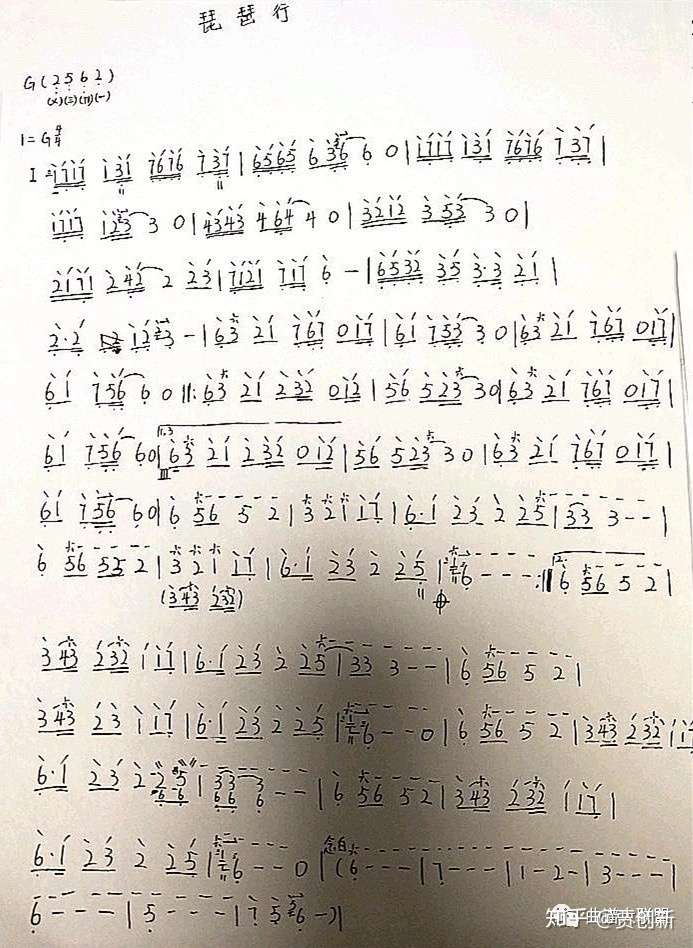 琵琶行
G(2 5 6 2)
(乂)(三)(川)(一)
1=G 4/4
I 1717 131 7676 737 | 6565 636 6 0 | 1717 131 7676 737 |
1717 123 3 0 | 4343 464 4 0 | 3212 353 3 0 |
2171 242 2 23 | 7121 717 6 - | 6532 35 3·3 21 |
2·2 123 - | 63 21 767 017 | 61 753 3 0 | 63 21 767 017 |
61 756 6 0 ||: 63 21 232 012 | 56 523 30 | 63 21 767 017 |
61 756 60 | 1,3 63 21 232 012 | 56 523 30 | 63 21 767 017 |
61 756 60 | 6 56 5 2 | 3 21 17 | 6·1 23 2 25 | 33 3 - - |
6 56 55 2 | 3 2 1 17 | 6·1 23 2 25 | 6 - - - :|| 2. 6 56 5 2 |
(343 232)
343 232 1 17 | 6·1 23 2 25 | 33 3 - - | 6 56 5 2 |
343 23 1 17 | 6·1 23 2 25 | 6 - - 0 | 6 56 5 2 | 343 232 1 17
6·1 23 2 25 | 33 3 - - | 6 56 5 2 | 343 232 1 17 |
66 66 6
6·1 23 2 25 | 6 - - 0 | 念白 (6 - - - | 7 - - - | 1 - 2 - | 3 - - - |
6 - - - | 5 - - - | 7 5 6 -)|
知乎 @贾创新